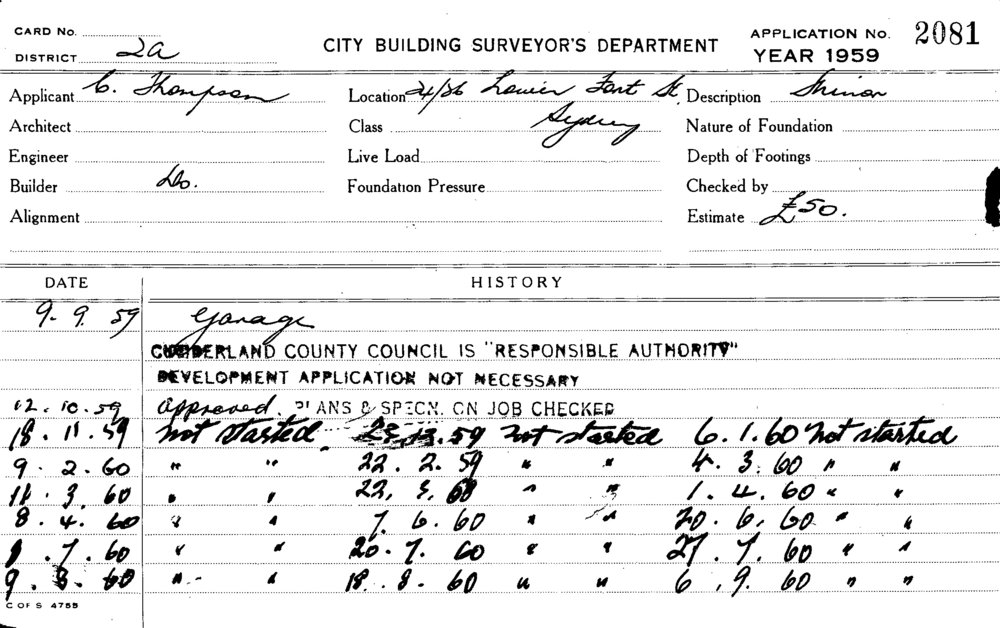 CARD No. CITY BUILDING SURVEYOR'S DEPARTMENT APPLICATION No. 2081
DISTRICT 2a YEAR 1959
Applicant C. Thompson Location 24/36 Lower Fort St, Description Minor
Architect Class Sydney Nature of Foundation
Engineer Live Load Depth of Footings
Builder Do. Foundation Pressure Checked by
Alignment Estimate £50.
DATE HISTORY
9. 9. 59 Garage
CUMBERLAND COUNTY COUNCIL IS "RESPONSIBLE AUTHORITY"
DEVELOPMENT APPLICATION NOT NECESSARY
12. 10. 59 Approved. PLANS & SPECN. ON JOB CHECKED
18. 11. 59 Not Started 23. 12. 59 Not started 6. 1. 60 Not started
9. 2. 60 " " 22. 2. 59 " " 4. 3. 60 " "
11. 3. 60 " " 22. 3. 60 " " 1. 4. 60 " "
8. 4. 60 " " 7. 6. 60 " " 20. 6. 60 " "
1. 7. 60 " " 20. 7. 60 " " 27. 7. 60 " "
9. 8. 60 " " 18. 8. 60 " " 6. 9. 60 " "
C OF S 4755